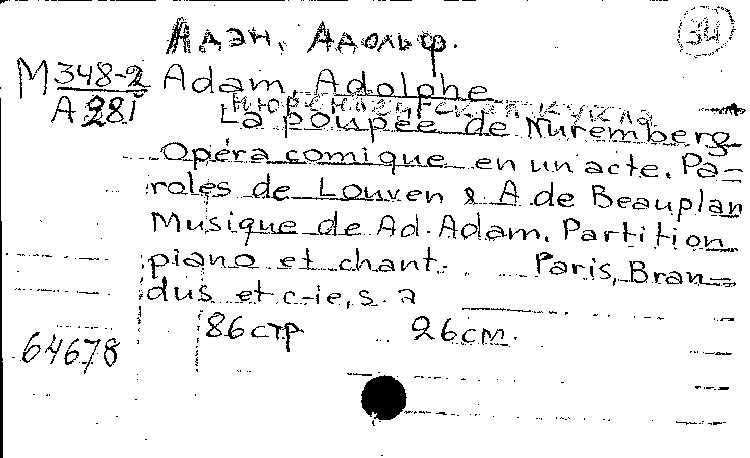 Адэн, Адольф.
34
М 348-2 Adam, Adolphe
А 281
Нюрнбергская кукла
La poupée de Nuremberg
Opéra comique en un acte. Pa=
roles de Louven & A de Beauplan
Musique de Ad. Adam. Partition
piano et chant. Paris, Bran=
dus et c-ie, s. a
86 стр. 26 см.
64678